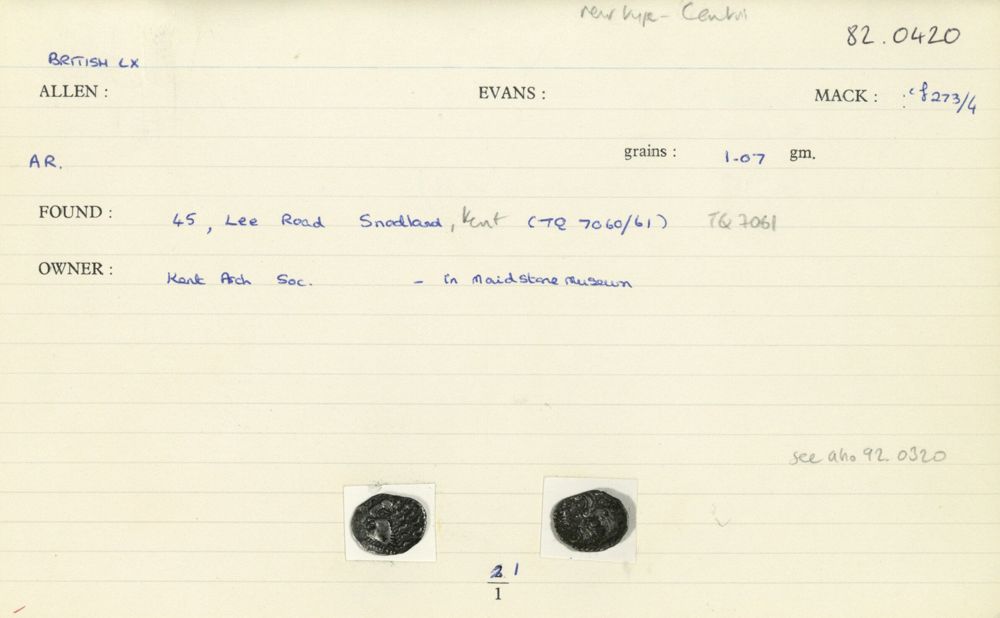 new type -
82.0420
BRITISH LX
ALLEN : EVANS : MACK : cf 273/4
AR. grains : 1.07 gm.
FOUND : 45, Lee Road Snodland, Kent (TQ 7060/61) TQ 7061
OWNER : Kent Arch Soc. - in Maidstone Museum
see also 92.0320
1
1